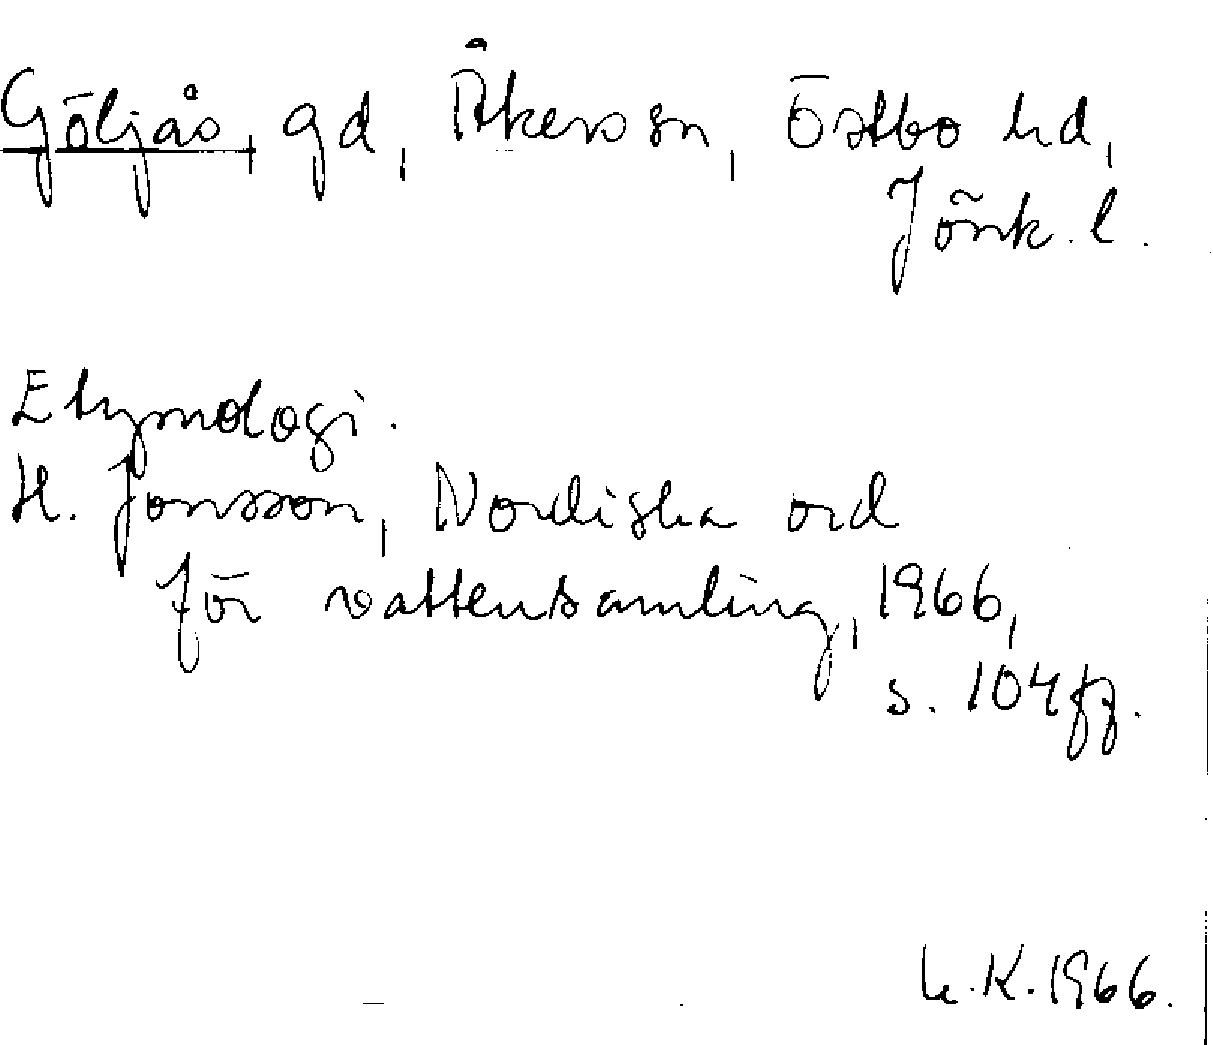 Göljås, gd, Åkers sn, Östbo hd,
Jönk. l.
Etymologi.
H. Jonsson, Nordiska ord
för vattensamling, 1966,
s. 104ff.
L.K. 1966.